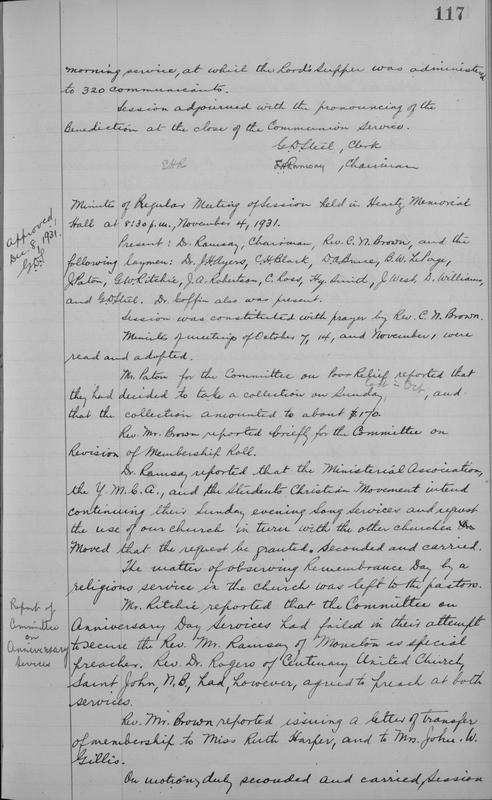 117
morning service, at which the Lord's Supper was administered
to 320 communicants.
Session adjourned with the pronouncing of the
Benediction at the close of the Communion Service.
G.D. Steel, Clerk
EHR E.H. Ramsay, Chairman
Minutes of Regular Meeting of Session held in Heartz Memorial
Hall at 8:30 p.m., November 4, 1931.
Approved
Dec. 8, 1931.
G.D.S.
Present: Dr. Ramsay, Chairman, Rev. C.N. Brown, and the
following laymen: Dr. J.H. Ayers, C.H. Black, D.A. Bruce, B.W. LePage,
J. Paton, G.W. Ritchie, J.A. Robertson, C. Ross, Hy. Smith, J. West, D. Williams,
and G.D. Steel. Dr. Coffin also was present.
Session was constituted with prayer by Rev. C.N. Brown.
Minutes of meetings of October 7, 14, and November 1, were
read and adopted.
Mr. Paton for the Committee on Poor Relief reported that
they had decided to take a collection on Sunday, last in Oct., and
that the collection amounted to about $170.
Rev. Mr. Brown reported briefly for the Committee on
Revision of Membership Roll.
Dr. Ramsay reported that the Ministerial Association,
the Y.M.C.A., and the Students Christian Movement intend
continuing their Sunday evening Song Services and request
the use of our church in turn with the other churches
Moved that the request be granted, seconded and carried.
The matter of observing Remembrance Day by a
religious service in the church was left to the pastors.
Report of
Committee
on
Anniversary
Services
Mr. Ritchie reported that the Committee on
Anniversary Day Services had failed in their attempt
to secure the Rev. Mr. Ramsay of Moncton as special
preacher. Rev. Dr. Rogers of Centenary United Church,
Saint John, N.B., had, however, agreed to preach at both
services.
Rev. Mr. Brown reported issuing a letter of transfer
of membership to Miss Ruth Harper, and to Mrs. John W.
Gillis.
On motion, duly seconded and carried, Session